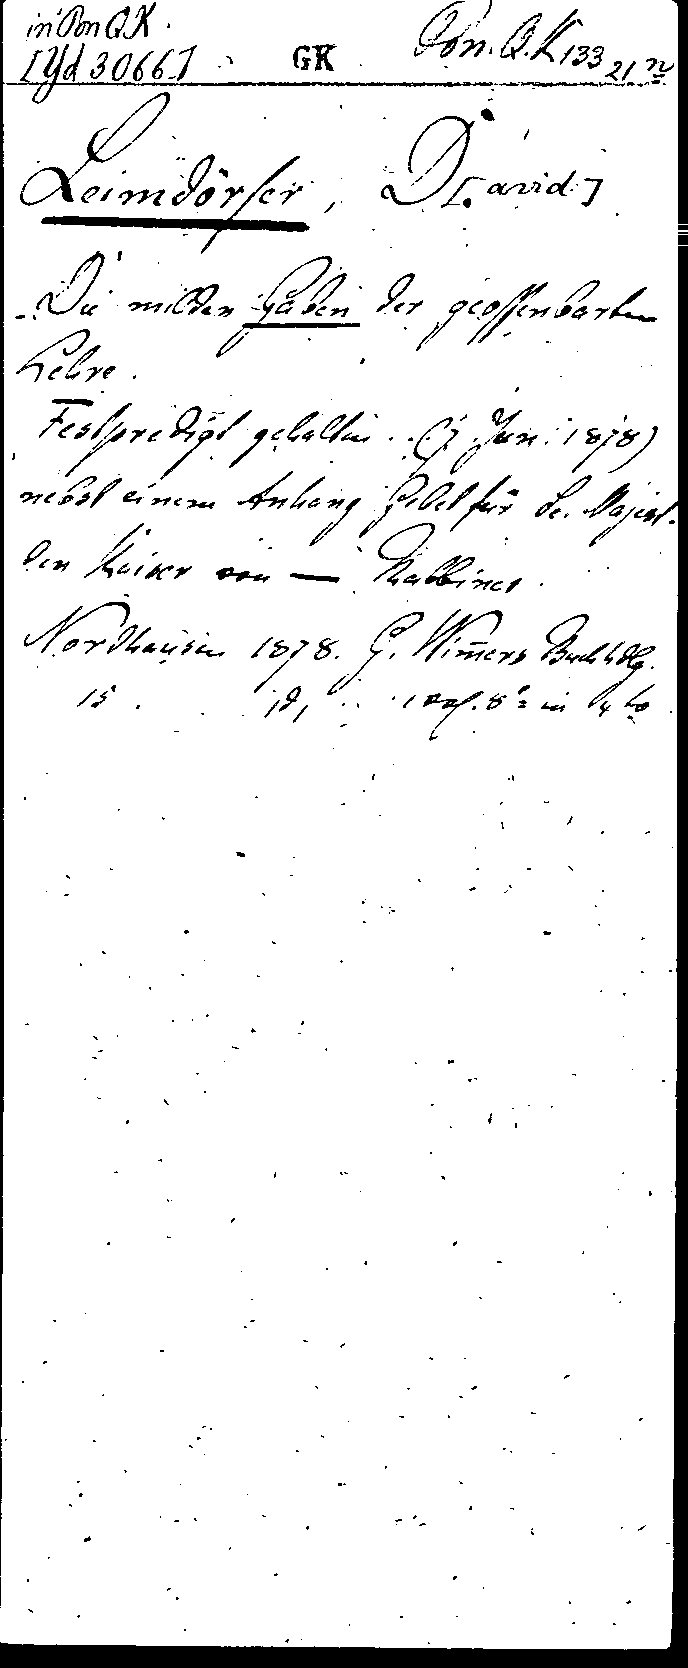 in Pon Q.K.
[Yd 3066] GK Pon. Q. K 133 21 n
Leimdörfer, D[avid]
Die milden Gaben der geoffenbarten
Lehre.
Festpredigt gehalten .. (7. Jun. 1878)
nebst einem Anhang Gebet für Se. Majest.
den Kaiser von — Rabbiner.
Nordhausen 1878. G. Wimmers Buchhdlg.
15 1 vol. 8° in 4to